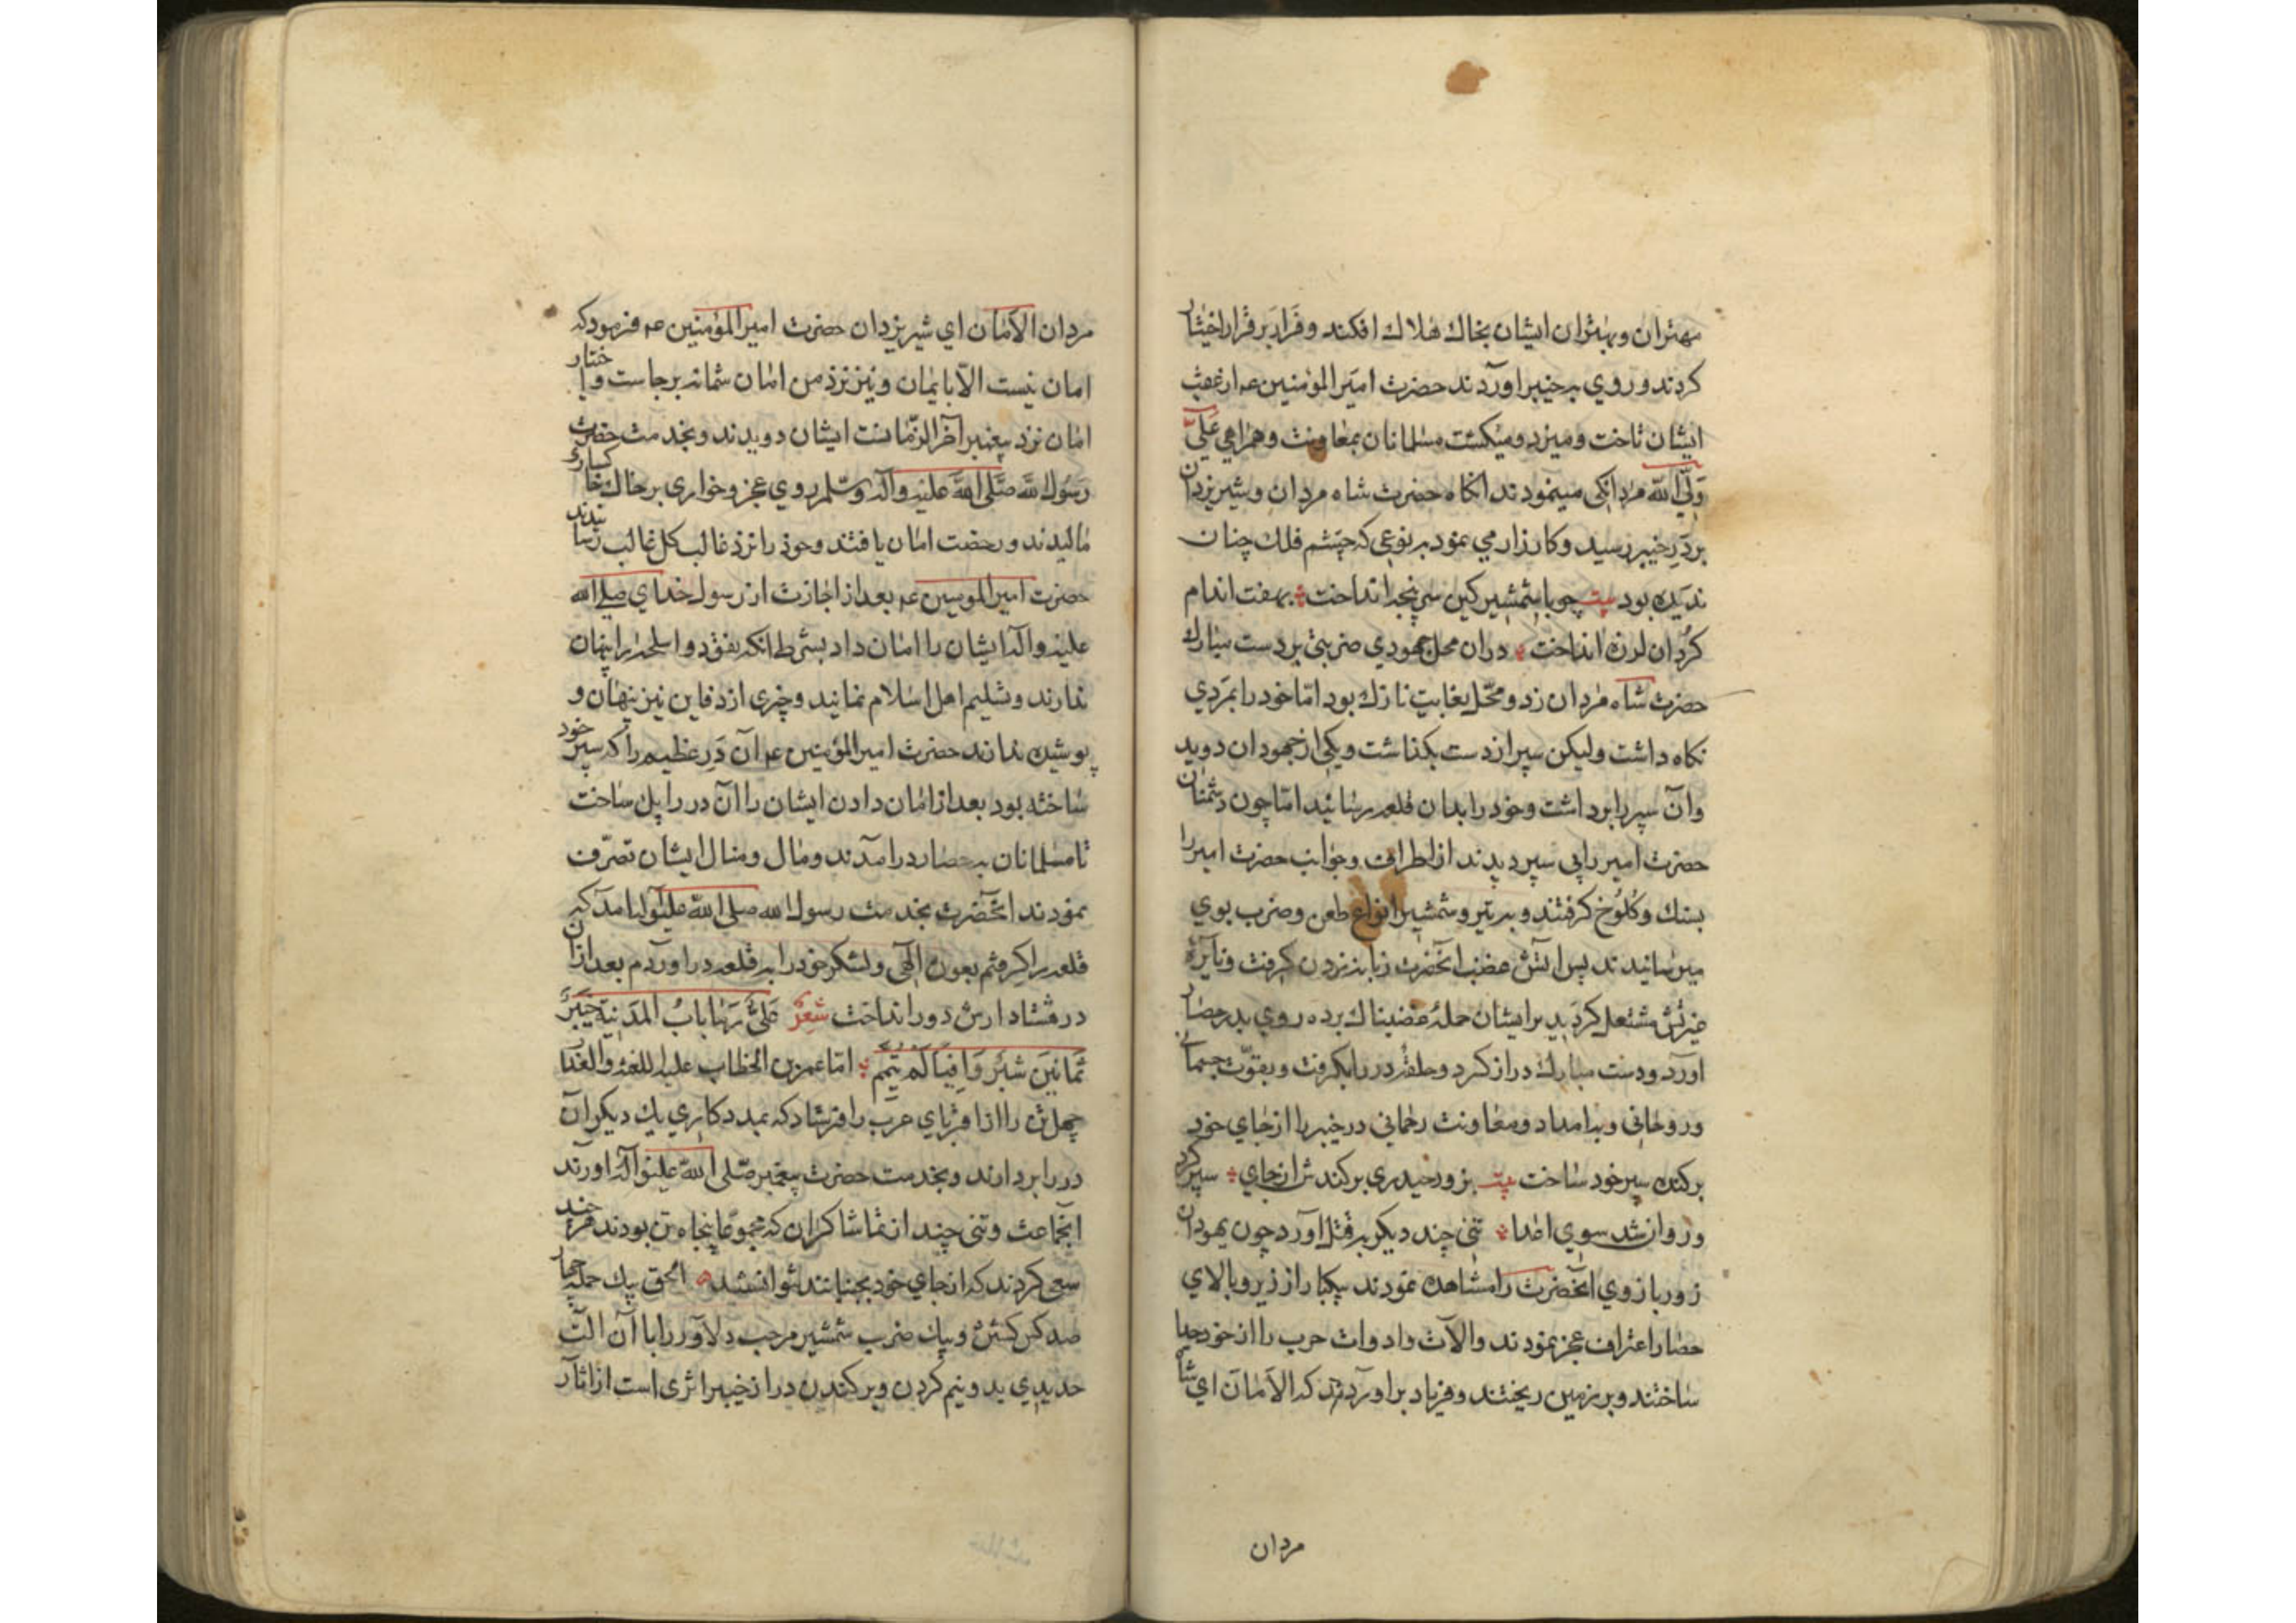 مهتران و بهتران ایشان بخاك هلاك افكند و فرار بر قرار اختیار
كردند و روي به خیبر اوردند حضرت امیر المؤمنین عم از عقب
ایشان تاخت و میزد و میكشت مسلمانان بمعاونت و همراهي علي
ولي الله مردانكي مینمودند انكاه حضرت شاه مردان و شیر یزدان
بر در خیبر رسید و كارزار می نمود به نوعی كه چشم فلك چنان
ندیده بود بیت چو با شمشیر كین سر پنجه انداخت بهفت اندام
كردان لرزه انداخت دران محل جهودي ضربتی بر دست مبارك
حضرت شاه مردان زد و محل بغایت نازك بود اما خود را بمردي
نكاه داشت ولیكن سپر از دست بكذاشت و یكی از جهودان دوید
وان سپر را برداشت و خود را بدان قلعه رسانید اما چون دشمنان
حضرت امیر را بی سپر دیدند از اطراف و جوانب حضرت امیر را
بسنك و كلوخ كرفتند و به تیر و شمشیر انواع طعن و ضرب بوي
میرسانیدند پس اتش غضب انحضرت زبانه زدن كرفت و نایره
غیرتش مشتعل كردید بر ایشان حمله غضبناك برده روي بدر حصار
اورد و دست مبارك دراز كرد و حلقه در را بكرفت و بقوت جسمانی
و روحانی و بامداد و معاونت رحمانی در خیبر را از جاي خود
بركنده سپر خود ساخت بیت بزور حیدري بركندش از جاي سپر كرد
و روان شد سوي اعدا تنی چند دیكر به قتل اورد چون یهودان
زور بازوي انحضرت را مشاهده نمودند بیكبار از زیر و بالاي
حصار اعتراف عجز نمودند و الات و ادوات حرب را از خود جدا
ساختند و بر زمین ریختند و فریاد براوردند كه الامان اي شاه
مردان
مردان الامان اي شیر یزدان حضرت امیر المؤمنین عم فرمود كه
امان نیست الا بایمان و نیز نزد من امان شما نه برجاست و اختیار
امان نزد پیغمبر اخر الزمانست ایشان دویدند و بخدمت حضرت
رسول الله صلی الله علیه واله وسلم روي عجز و خواری بر خاك خاكساری
مالیدند و رخصت امان یافتند و خود را نزد غالب كل غالب رسانیدند
حضرت امیر المومنین عم بعد از اجازت از رسول خداي صلی الله
علیه واله ایشان را امان داد بشرط انكه نقد و اسلحه را پنهان
ندارند و تسلیم اهل اسلام نمایند و چیزی از دفاین نیز پنهان و
پوشیده ندارند حضرت امیر المؤمنین عم ان در عظیم را كه سپر خود
ساخته بود بعد از امان دادن ایشان را ان در را پل ساخت
تا مسلمانان به حصار درامدند و مال و منال ایشان تصرف
نمودند انحضرت بخدمت رسول الله صلی الله علیه واله امد كه
قلعه را كرفتم بعون الهی و لشكر خود را به قلعه در اوردم بعد ازان
در هشتاد ارش دور انداخت شعر علي رمی باب المدینة خیبر
ثمانین شبر وافیا لم یثلم اما عمر بن الخطاب علیه اللعنه والعذاب
چهل تن را از اقرباي عرب را فرستاد كه بمددكاري یك دیكر ان
در را بردارند و بخدمت حضرت پیغمبر صلی الله علیه واله اورند
انجماعت و تنی چند از تماشاكران كه مجموعا پنجاه تن بودند هر چند
سعی كردند كه از جاي خود بجنبانند نتوانستند الحق بیك حمله چهار
صد كس كشتن و بیك ضرب شمشیر مرحب دلاور را با ان الت
حدیدي بدو نیم كردن و بركندن در از خیبر اثری است از اثار